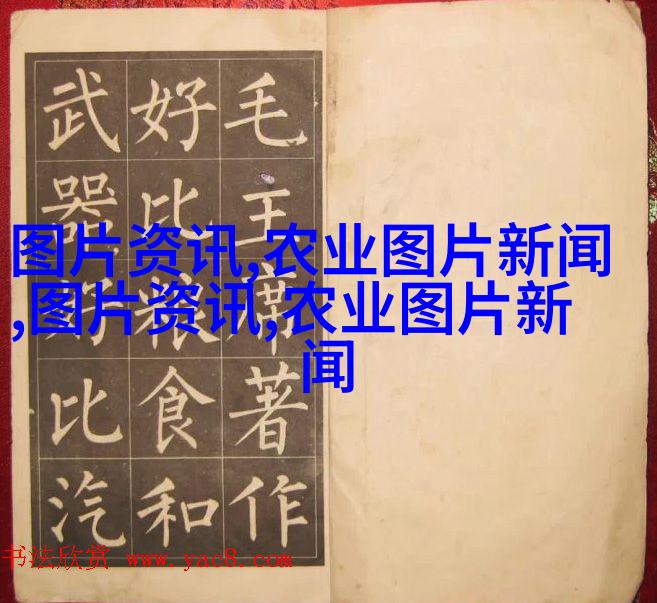 毛主席著作
好比粮食和
武器好比汽
图片资讯,农业图片新闻
,图片资讯,农业图片新
闻
书法欣赏 www.yac8.com